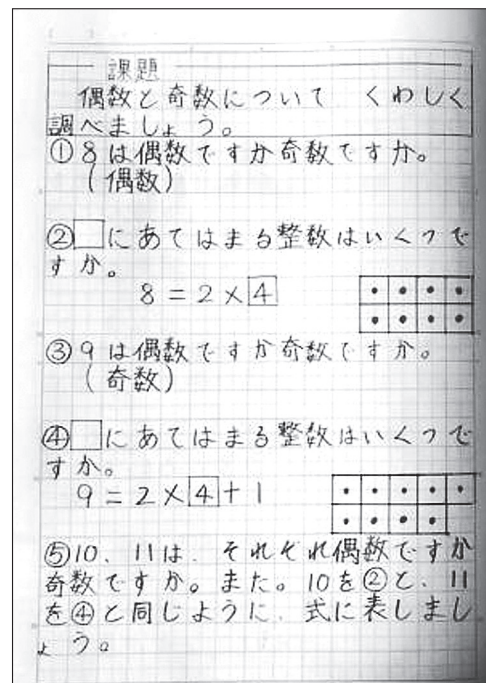 課題
偶数と奇数について くわしく
調べましょう。
①8は偶数ですか奇数ですか。
(偶数)
②□にあてはまる整数はいくつで
すか。
8=2×4
③9は偶数ですか奇数ですか。
(奇数)
④□にあてはまる整数はいくつで
すか。
9=2×4+1
⑤10、11は、それぞれ偶数ですか
奇数ですか。また。10を②と、11
を④と同じように、式に表しまし
ょう。